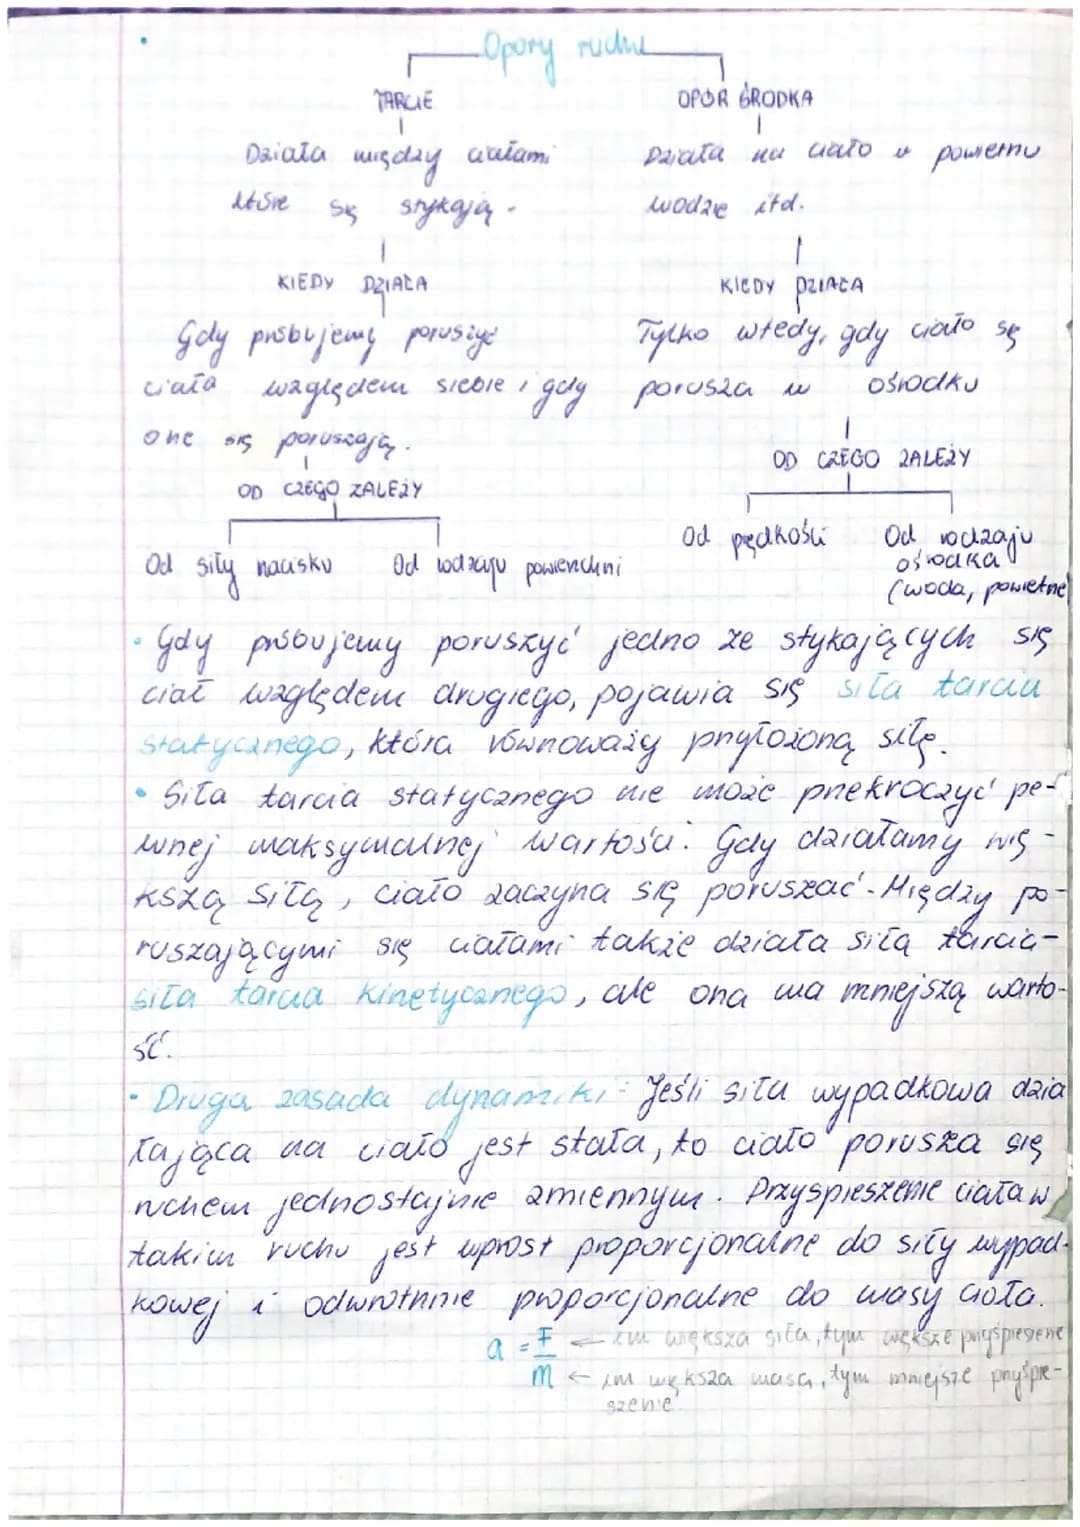 Opory ruchu
TARCIE
Działa między ciałami
które się stykają.
KIEDY DZIAŁA
Gdy próbujemy poruszyć
ciała względem siebie i gdy
one się poruszają.
OD CZEGO ZALEŻY
Od siły nacisku
Od rodzaju powierzchni
OPÓR ŚRODKA
Działa na ciało w powietrzu
wodzie itd.
KIEDY DZIAŁA
Tylko wtedy, gdy ciało się
porusza w ośrodku
OD CZEGO ZALEŻY
Od prędkości
Od rodzaju
ośrodka
(woda, powietrze
• Gdy próbujemy poruszyć jedno ze stykających się
ciał względem drugiego, pojawia się siła tarcia
statycznego, która równoważy przyłożoną siłę.
• Siła tarcia statycznego nie może przekroczyć pe-
wnej maksymalnej wartości. Gdy działamy wię-
kszą siłą, ciało zaczyna się poruszać. Między po-
ruszającymi się ciałami także działa siła tarcia-
siła tarcia kinetycznego, ale ona ma mniejszą warto-
ść.
• Druga zasada dynamiki: Jeśli siła wypadkowa dzia
łająca na ciało jest stała, to ciało porusza się
ruchem jednostajnie zmiennym. Przyspieszenie ciała w
takim ruchu jest wprost proporcjonalne do siły wypad-
kowej i odwrotnie proporcjonalne do masy ciała.
a = F ← im większa siła, tym większe przyśpieszenie
m ← im większa masa, tym mniejsze przyśpie-
szenie.